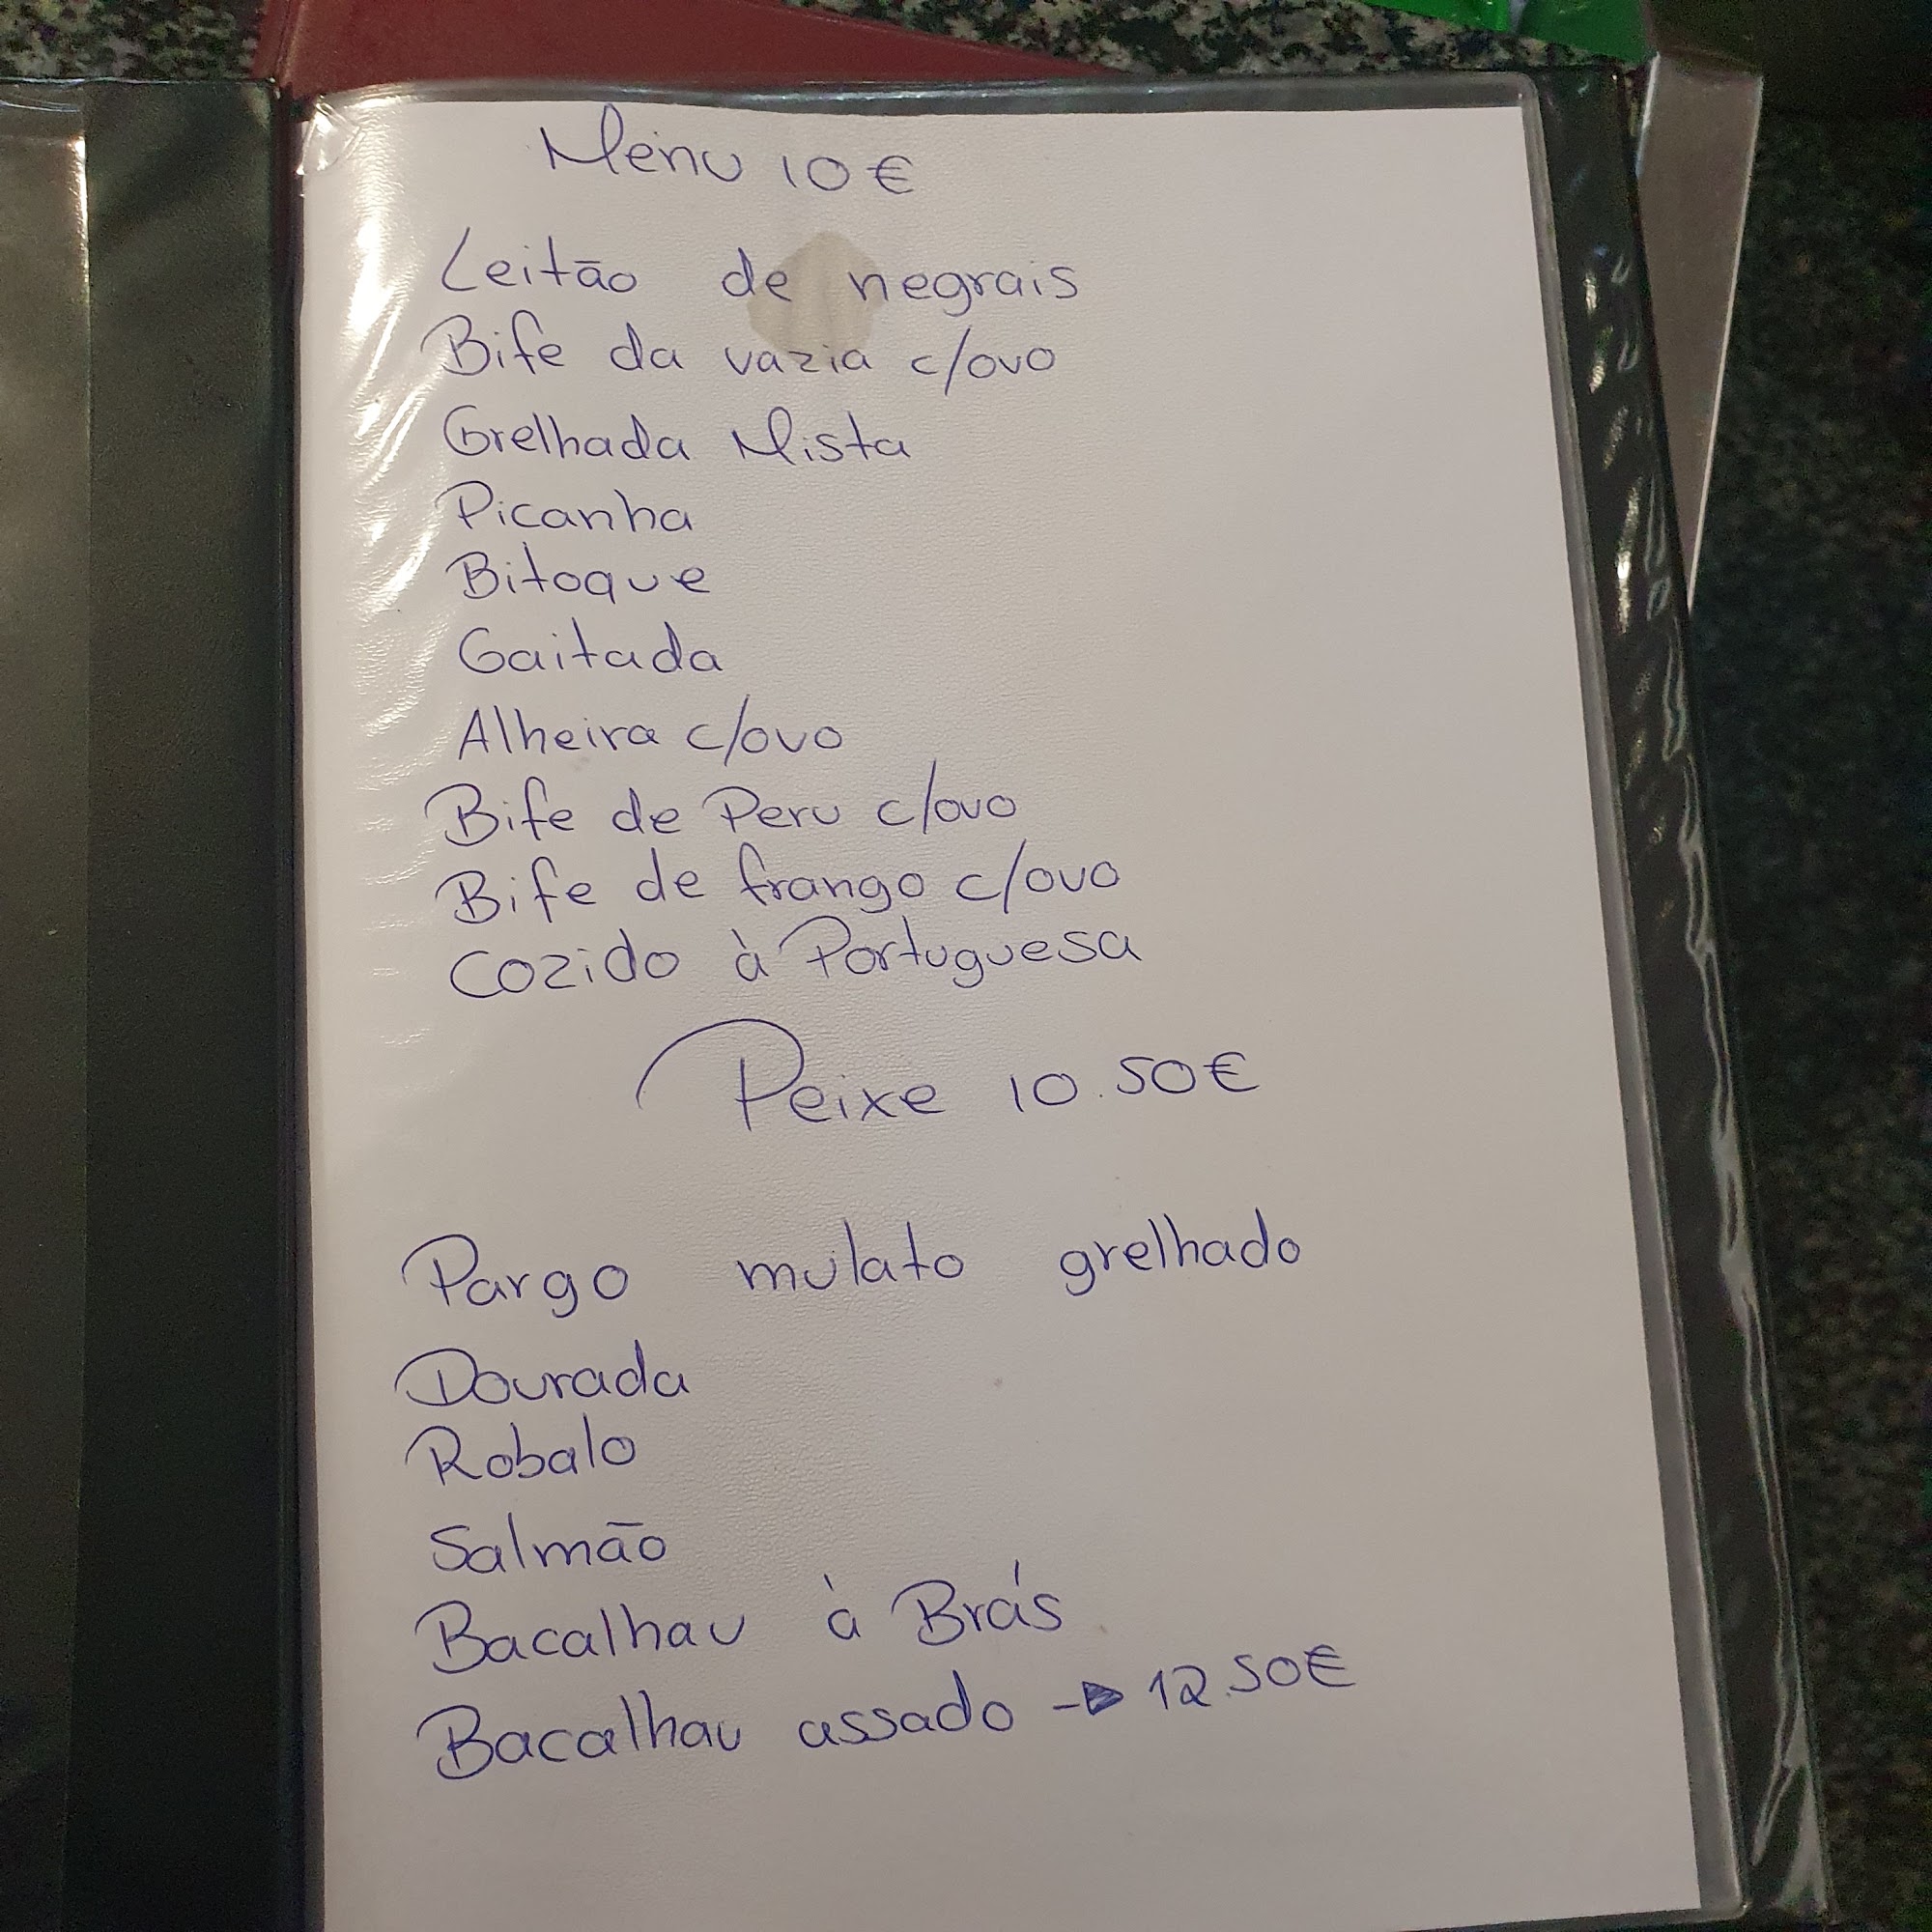 Menu 10€
Leitão de negrais
Bife da vazia c/ovo
Grelhada Mista
Picanha
Bitoque
Gaitada
Alheira c/ovo
Bife de Peru c/ovo
Bife de frango c/ovo
Cozido à Portuguesa
Peixe 10.50€
Pargo mulato grelhado
Dourada
Robalo
Salmão
Bacalhau à Brás
Bacalhau assado → 12.50€